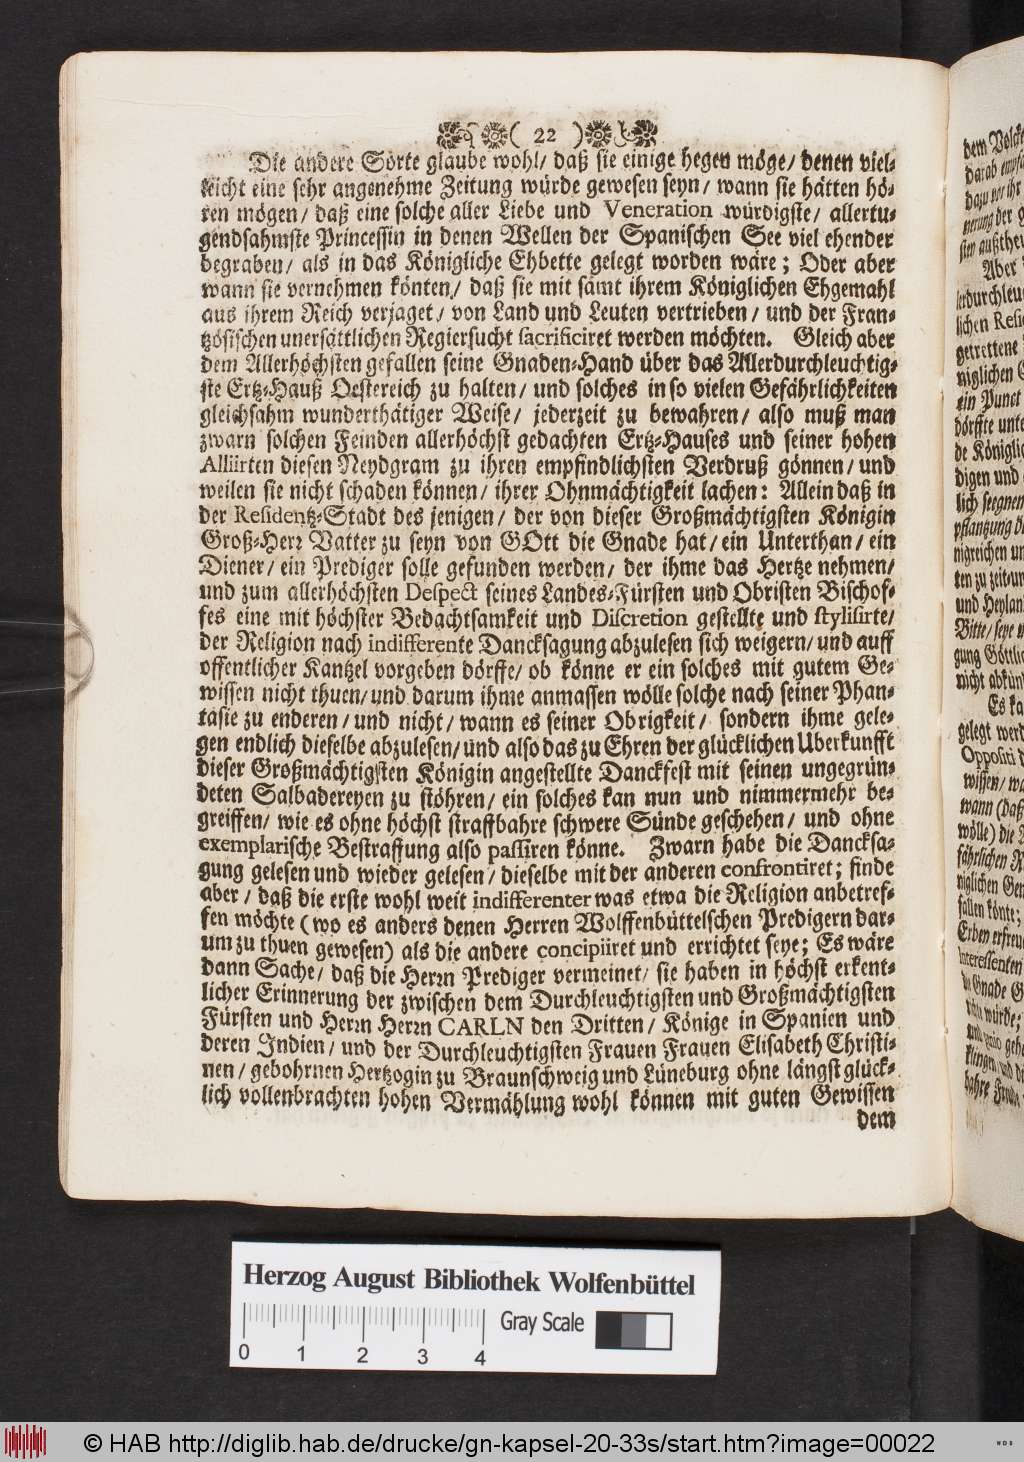 ( 22 )
Die andere Sorte glaube wohl/ daß sie einige hegen möge/ denen viel-
leicht eine sehr angenehme Zeitung würde gewesen seyn/ wann sie hätten hö-
ren mögen/ daß eine solche aller Liebe und Veneration würdigste/ allertu-
gendsahmste Princessin in denen Wellen der Spanischen See viel ehender
begraben/ als in das Königliche Ehbette gelegt worden wäre; Oder aber
wann sie vernehmen könten/ daß sie mit samt ihrem Königlichen Ehgemahl
aus ihrem Reich verjaget/ von Land und Leuten vertrieben/ und der Fran-
tzösischen unersättlichen Regiersucht sacrificiret werden möchten. Gleich aber
dem Allerhöchsten gefallen seine Gnaden-Hand über das Allerdurchleuchtig-
ste Ertz-Hauß Oesterreich zu halten/ und solches in so vielen Gefährlichkeiten
gleichsahm wunderthätiger Weise/ jederzeit zu bewahren/ also muß man
zwarn solchen Feinden allerhöchst gedachten Ertz-Hauses und seiner hohen
Alliirten diesen Neydgram zu ihren empfindlichsten Verdruß gönnen/ und
weilen sie nicht schaden können/ ihrer Ohnmächtigkeit lachen: Allein daß in
der Residentz-Stadt des jenigen/ der von dieser Großmächtigsten Königin
Groß-Herr Vatter zu seyn von GOtt die Gnade hat/ ein Unterthan/ ein
Diener/ ein Prediger solle gefunden werden/ der ihme das Hertze nehmen/
und zum allerhöchsten Despect seines Landes-Fürsten und Obristen Bischof-
fes eine mit höchster Bedachtsamkeit und Discretion gestellte und stylisirte/
der Religion nach indifferente Dancksagung abzulesen sich weigern/ und auff
offentlicher Kantzel vorgeben dörffe/ ob könne er ein solches mit gutem Ge-
wissen nicht thuen/ und darum ihme anmassen wölle solche nach seiner Phan-
tasie zu enderen/ und nicht/ wann es seiner Obrigkeit/ sondern ihme gele-
gen endlich dieselbe abzulesen/ und also das zu Ehren der glücklichen Uberkunfft
dieser Großmächtigsten Königin angestellte Danckfest mit seinen ungegrün-
deten Salbadereyen zu stöhren/ ein solches kan nun und nimmermehr be-
greiffen/ wie es ohne höchst straffbahre schwere Sünde geschehen/ und ohne
exemplarische Bestraffung also passiren könne. Zwarn habe die Dancksa-
gung gelesen und wieder gelesen/ dieselbe mit der anderen confrontiret; finde
aber/ daß die erste wohl weit indifferenter was etwa die Religion anbetref-
fen möchte (wo es anders denen Herren Wolffenbüttelschen Predigern dar-
um zu thuen gewesen) als die andere concipiiret und errichtet seye; Es wäre
dann Sache/ daß die Herrn Prediger vermeinet/ sie haben in höchst erkent-
licher Erinnerung der zwischen dem Durchleuchtigsten und Großmächtigsten
Fürsten und Herrn Herrn CARLN den Dritten/ Könige in Spanien und
deren Indien/ und der Durchleuchtigsten Frauen Frauen Elisabeth Christi-
nen/ gebohrnen Hertzogin zu Braunschweig und Lüneburg ohne längst glück-
lich vollenbrachten hohen Vermählung wohl können mit guten Gewissen
dem
dem Volck
Aber
lichen Resi
ein Punct
de Königlic
digen und
und Heylan
gung Göttlic
nicht abkün
Es ka
gelegt werd
Oppositi
wissen/
wann (daß
wölle) die
fallen könte;
Interessenten
Herzog August Bibliothek Wolfenbüttel
0 1 2 3 4
Gray Scale
© HAB http://diglib.hab.de/drucke/gn-kapsel-20-33s/start.htm?image=00022